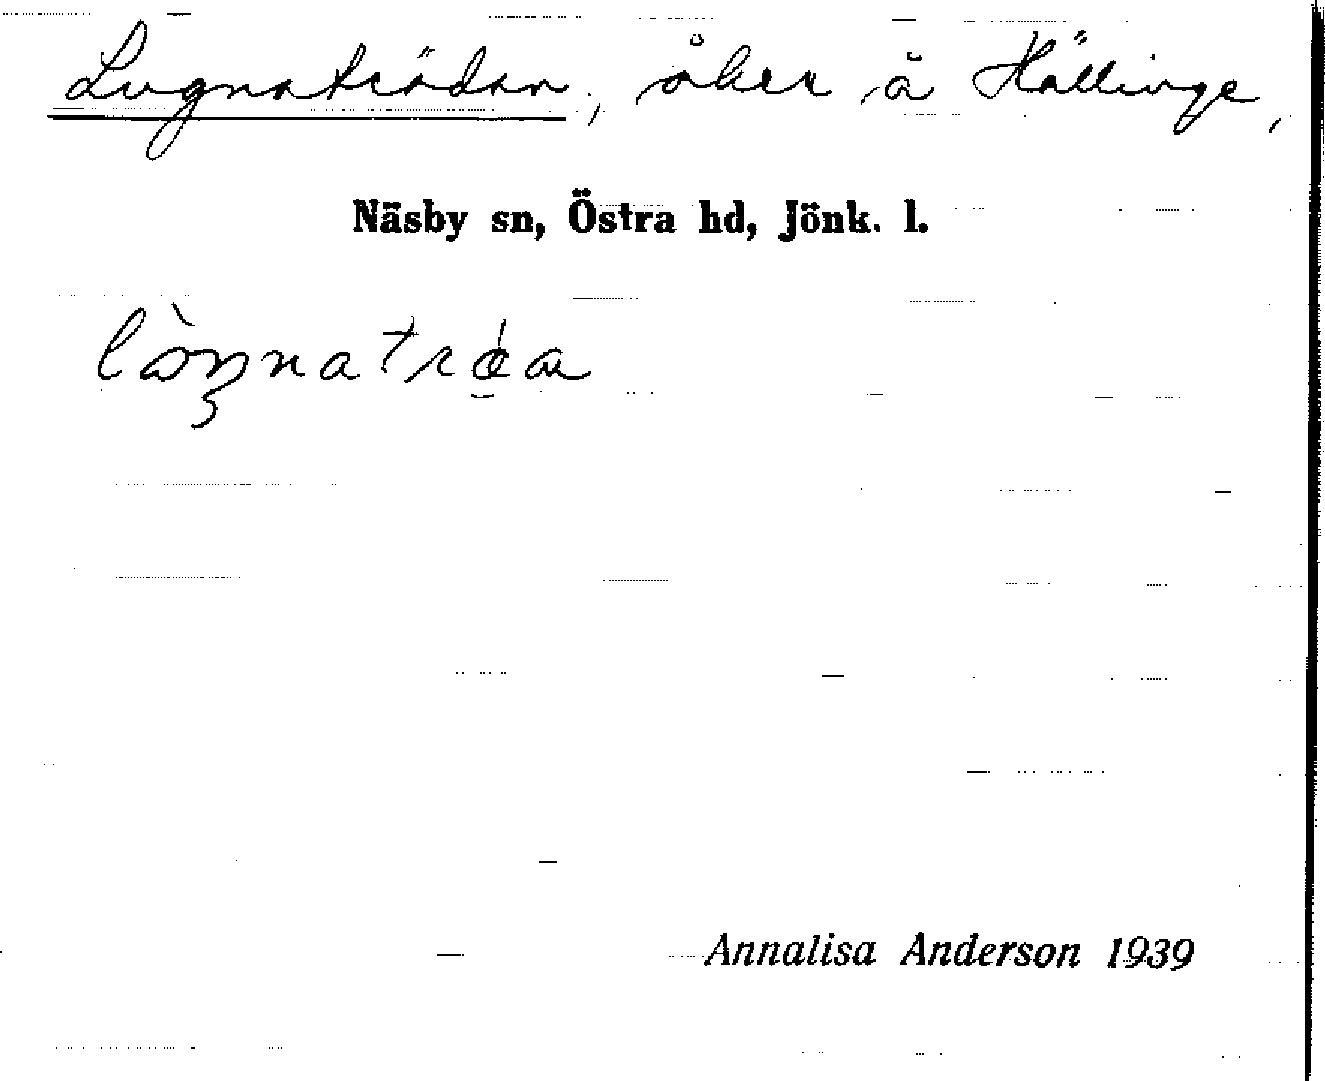 Lugnaträdan, åker å Hällinge,
Näsby sn, Östra hd, Jönk. l.
Annalisa Anderson 1939